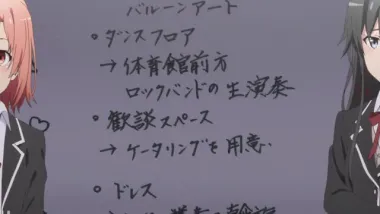 バルーンアート
・ダンスフロア
→ 体育館前方
ロックバンドの生演奏
・歓談スペース
→ ケータリングを用意
・ドレス